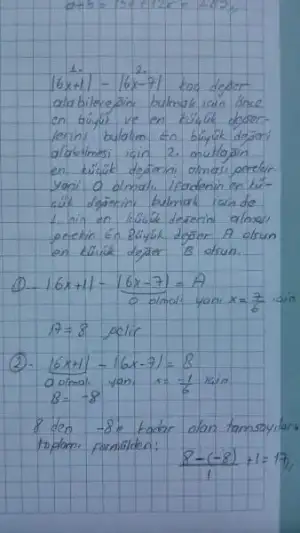 1. 2.
|6x+1| - |6x-7| kaç değer
alabileceğini bulmak için önce
en büyük ve en küçük değer-
lerini bulalım en büyük değeri
alabilmesi için 2. mutlağın
en küçük değerini alması gerekir
yani 0 olmalı. ifadenin en kü-
çük değerini bulmak için de
1. nin en küçük değerini alması
gerekir En Büyük değer A olsun
en küçük değer B olsun.
①- |6x+1| - |6x-7| = A
0 olmalı yani x = 7/6 için
A = 8 gelir
②- |6x+1| - |6x-7| = B
0 olmalı yani x = -1/6 için
B = -8
8'den -8'e kadar olan tamsayıların
toplamı formülden;
8-(-8)/1 + 1 = 17